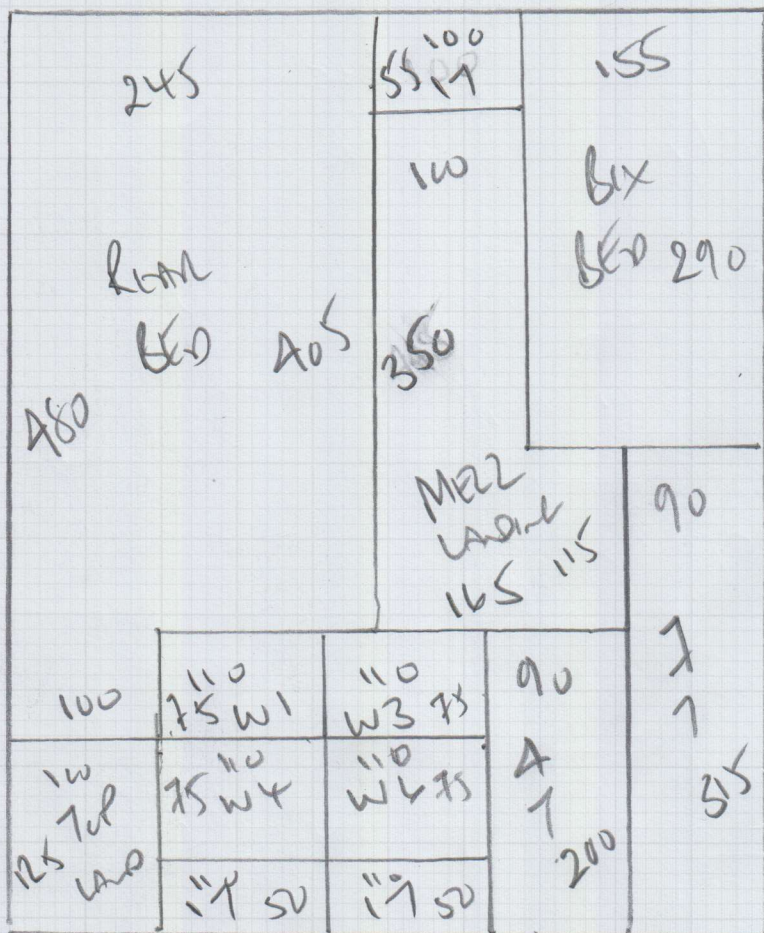 245
100
55 1T
155
110
BOX
BED 290
REAR
BED 405
350
480
MEZZ
LANDING
165 115
90
100
110
75 W1
110
W3 75
90
7
T
315
110
TOP
LAND
125
110
75 W4
110
75
4
T
200
1T 50
1T 50